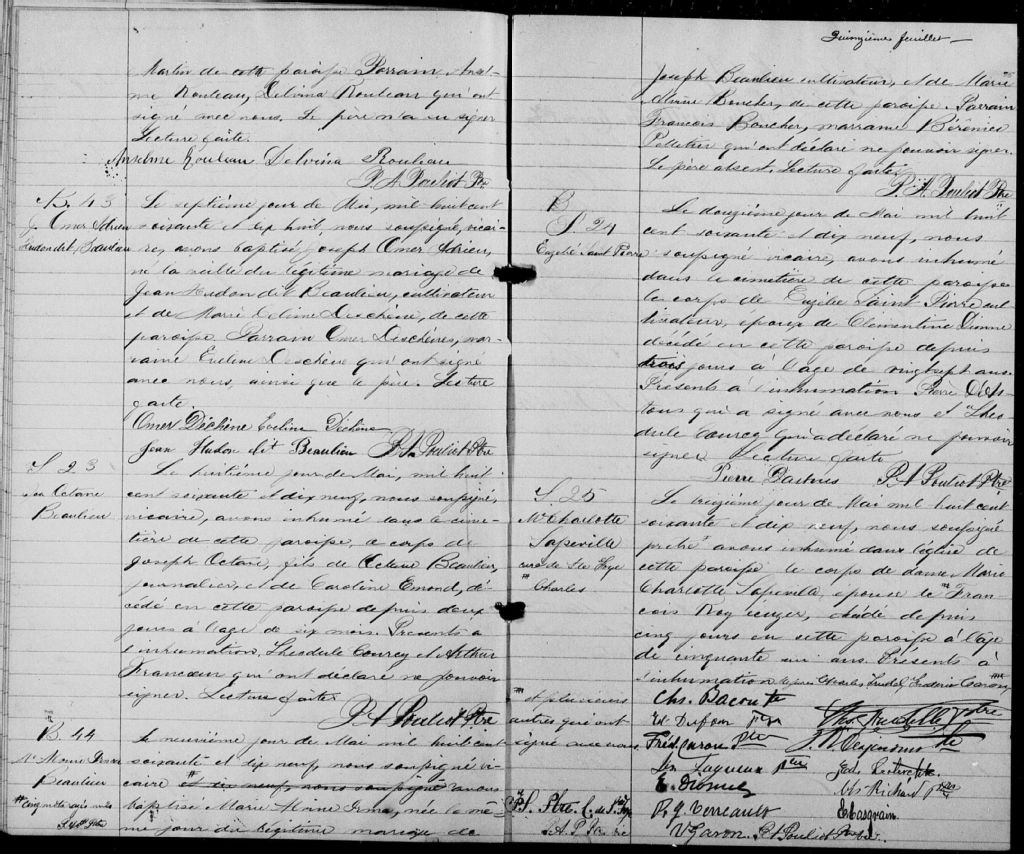 Martin de cette paroisse Parrain, Ansel-
me Rouleau, Delvina Rouleau qui ont
signé avec nous. Le père n'a su signer
Lecture faite.
Anselme Rouleau Delvina Rouleau
P. A. Pouliot Ptre
B. 43
J. Omer Adrien
Hudon dit Beaulieu
Le septième jour de Mai, mil huit cent
soixante et dix huit, nous soussigné, vicai-
re, avons baptisé Joseph Omer Adrien,
né la veille du légitime mariage de
Jean Hudon dit Beaulieu, cultivateur
et de Marie Deline Deschène, de cette
paroisse. Parrain Omer Deschènes, mar-
raine Eveline Deschène qui ont signé
avec nous, ainsi que le père. Lecture
faite.
Omer Déchène Eveline Déchène
Jean Hudon dit Beaulieu P. A. Pouliot Ptre
S 23
Jos Octave
Beaulieu
Le huitième jour de Mai, mil huit
cent soixante et dix neuf, nous soussigné,
vicaire, avons inhumé dans le cime-
tière de cette paroisse, le corps de
Joseph Octave, fils de Octave Beaulieu,
journalier, et de Caroline Emond, dé-
cédé en cette paroisse depuis deux
jours à l'age de six mois. Presents à
l'inhumation, Théodule Courcy et Arthur
Francoeur qui ont déclaré ne pouvoir
signer. Lecture faite
P. A Pouliot Ptre
B. 44
Beaulieu
Le neuvième jour de Mai mil huit cent
soixante et dix neuf, nous soussigné vi-
caire et dix neuf, nous soussigné avons
baptisé Marie Irma, née le mê-
me jour du légitime mariage de
Quinzième feuillet
Joseph Beaulieu cultivateur, et de Marie
Boucher, de cette paroisse. Parrain
Francois Boucher, marraine Bérénice
Pelletier qui ont déclaré ne pouvoir signer.
Le père absent. Lecture faite
P. A. Pouliot Ptre
S. 24
Saint Pierre
Le douzième jour de Mai mil huit
cent soixante et dix neuf, nous
soussigné vicaire, avons inhumé
dans le cimetière de cette paroisse
le corps de Saint Pierre cul
tivateur, époux de Clémentine Dionne
décédé en cette paroisse depuis
trois jours à l'age de vingt sept ans.
Présents à l'inhumation Pierre
qui a signé avec nous et Théo
dule Courcy qui a déclaré ne pouvoir
signer. Lecture faite
Pierre P. A Pouliot Ptre
S 25
Me Charlotte
Lapeville
curé de Ste Foye
Charles
Le treizième jour de Mai mil huit cent
soixante et dix neuf, nous soussigné
prêtre avons inhumé dans l'église de
cette paroisse le corps de dame Marie
Charlotte Lapeville, épouse de Fran
cois Roy, décédé depuis
cinq jours en cette paroisse à l'age
de cinquante un ans. Présents à
l'inhumation Charles Trudel, Frédéric Caron
et plusieurs
autres qui ont
signé avec nous
Chs. Bacon Ptre
Ed Dufour Ptre
Fred. Caron Ptre
Ptre
E. Dionne
Chs Richard Ptre
P. G. Verreault
E Casgrain
V. Garon. P. A Pouliot Ptre